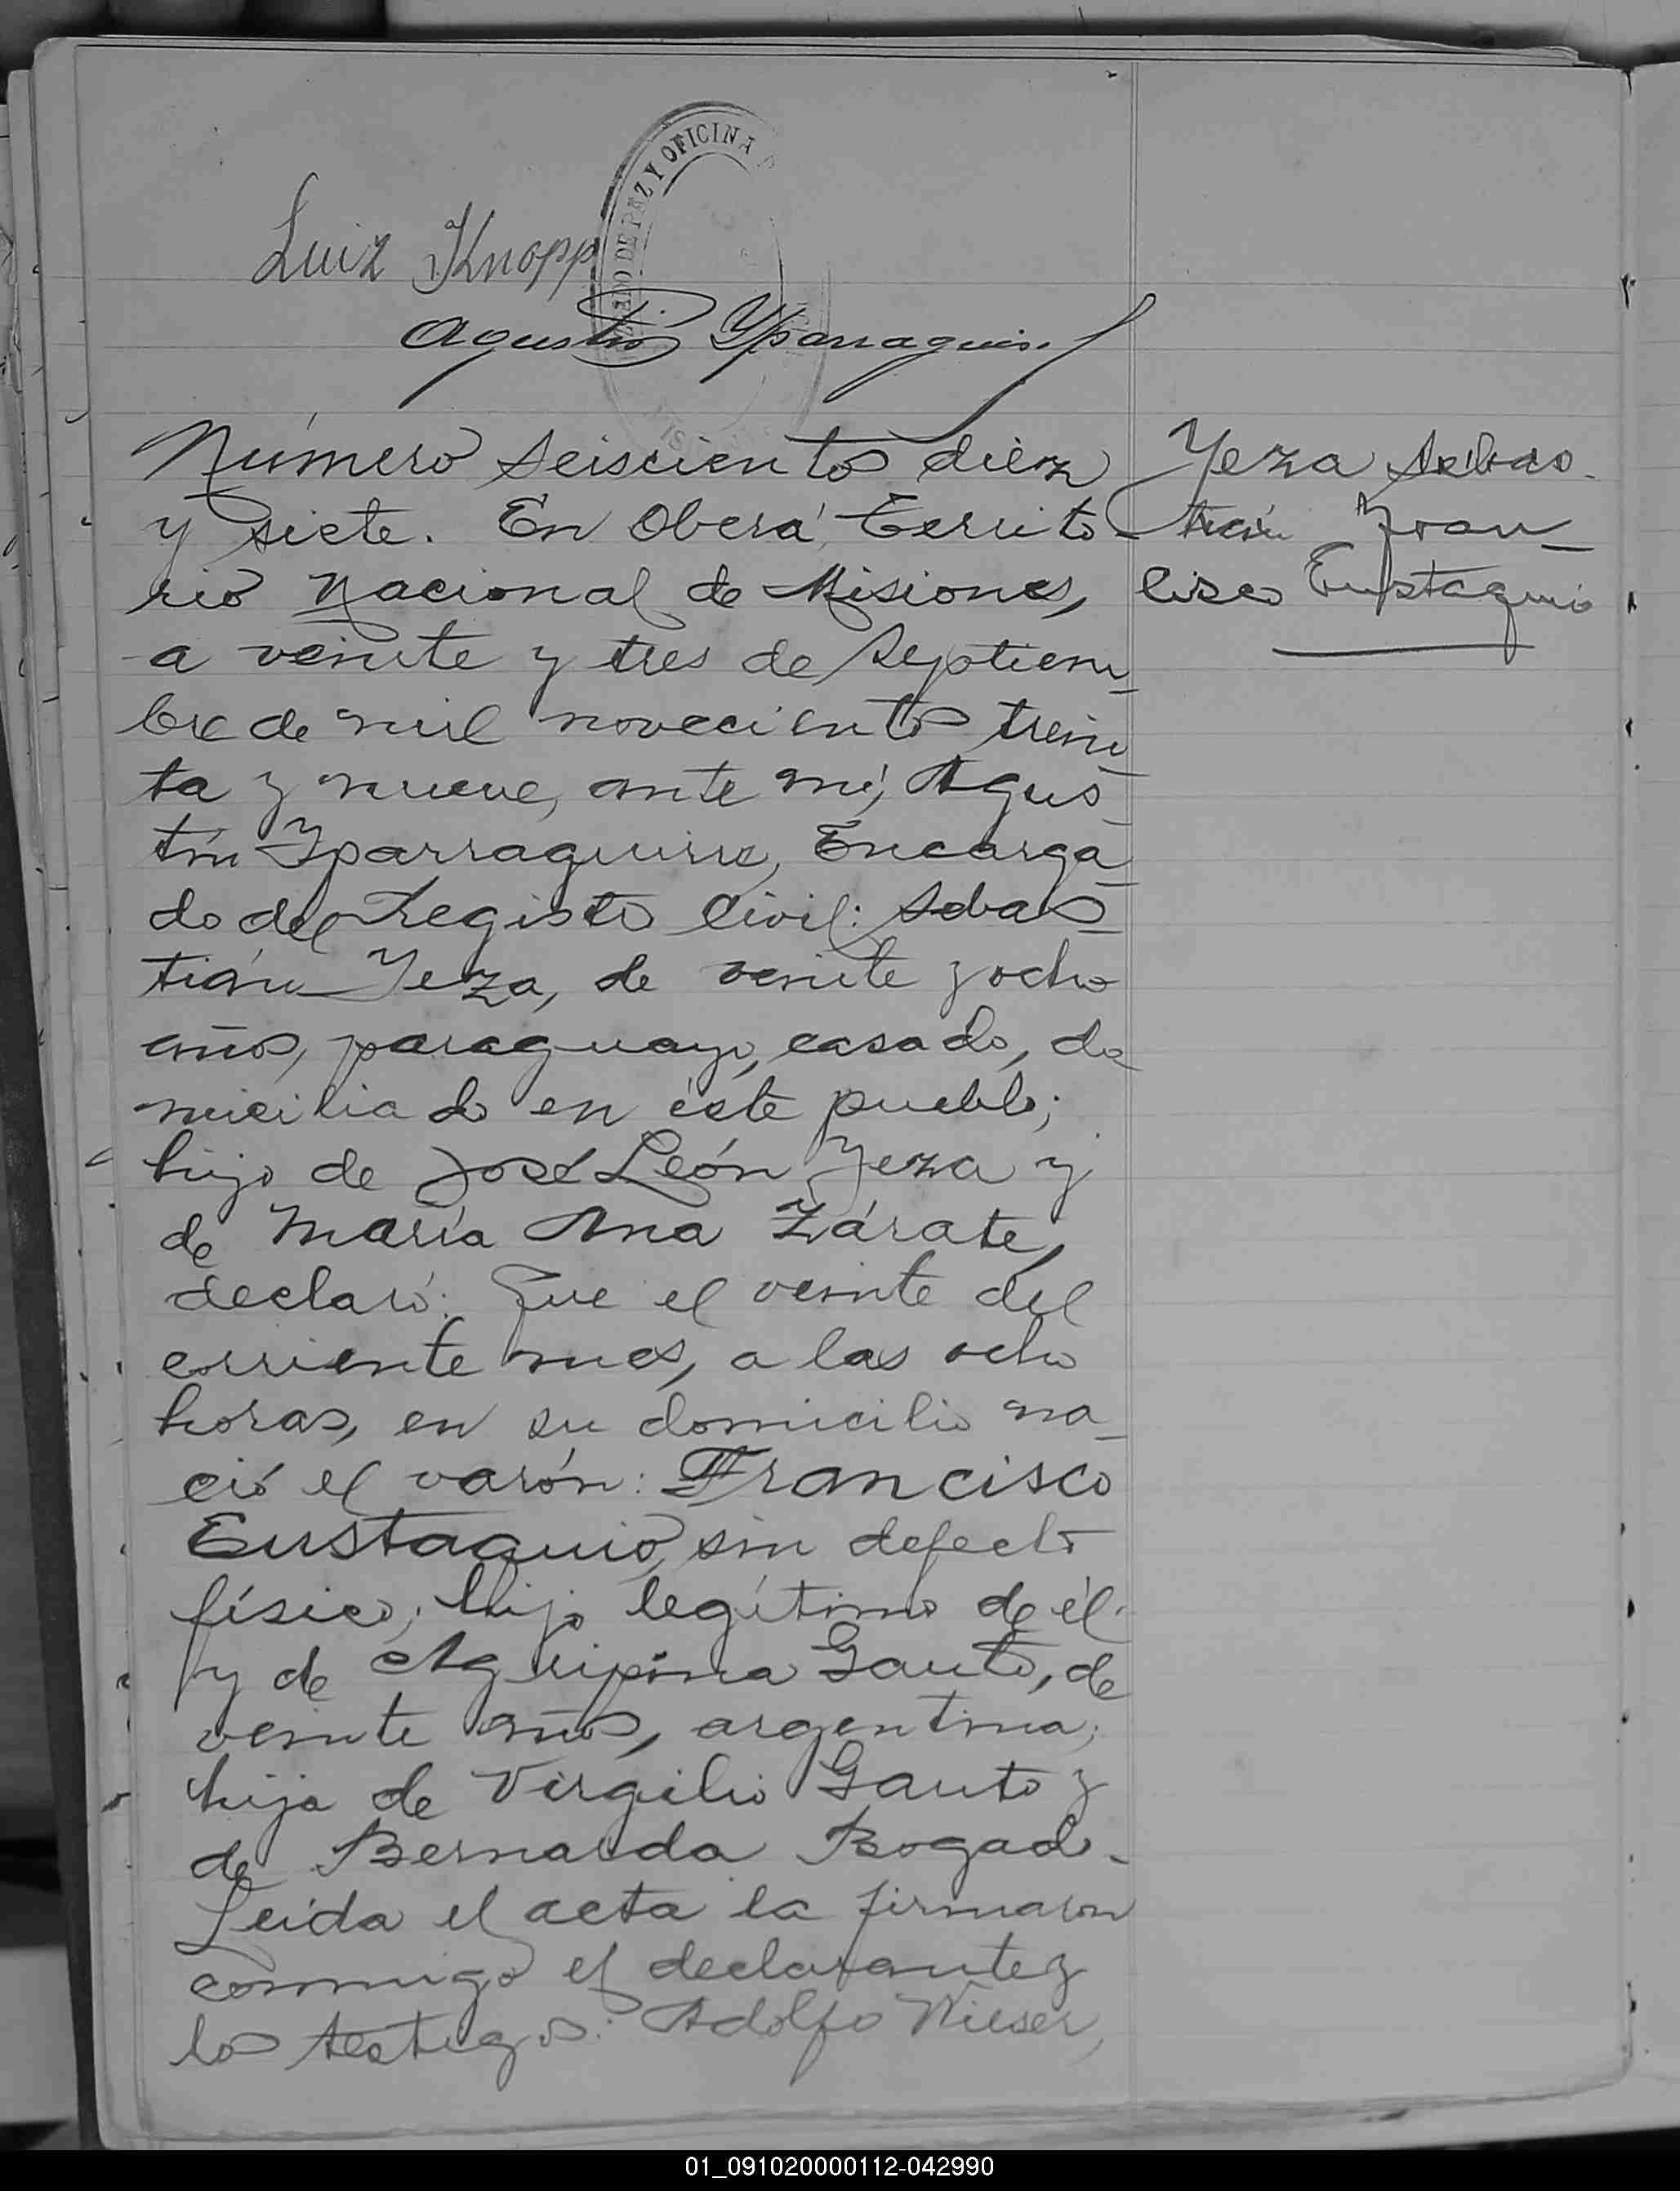 JUZGADO DE PAZ Y OFICINA
Luiz Knopp
Agustín Yparraguirre
Número seiscientos diez
y siete. En Oberá, Territo-
rio Nacional de Misiones,
a veinte y tres de Septiem-
bre de mil novecientos trein-
ta y nueve, ante mí, Agus-
tín Yparraguirre, Encarga-
do del Registo Civil: Sebas-
tián Yeza, de veinte y ocho
años, paraguayo, casado, do
miciliado en éste pueblo;
hijo de José León Yeza y
de María Ana Zárate,
declaró: Que el veinte del
corriente mes, a las ocho
horas, en su domicilio na-
ció el varón: Francisco
Eustaquio, sin defecto
físico; hijo legítimo de él
y de Agripina Gauto, de
veinte años, argentina;
hija de Virgilio Gauto y
de Bernarda Bogado.
Leída el acta la firmaron
conmigo el declarante y
los testigos: Adolfo Wieser,
Yeza Sebas-
tián Fran-
cisco Eustaquio
01_091020000112-042990